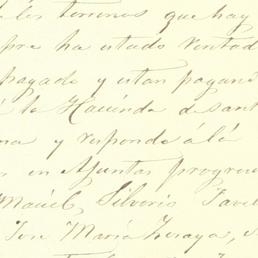 los terrenos que hay
pre ha estado
pagado y estan pagan
á la Hacienda de sant
na y responde á lá
en Apuntas progres
Manuel, Silverio
Jose Maria